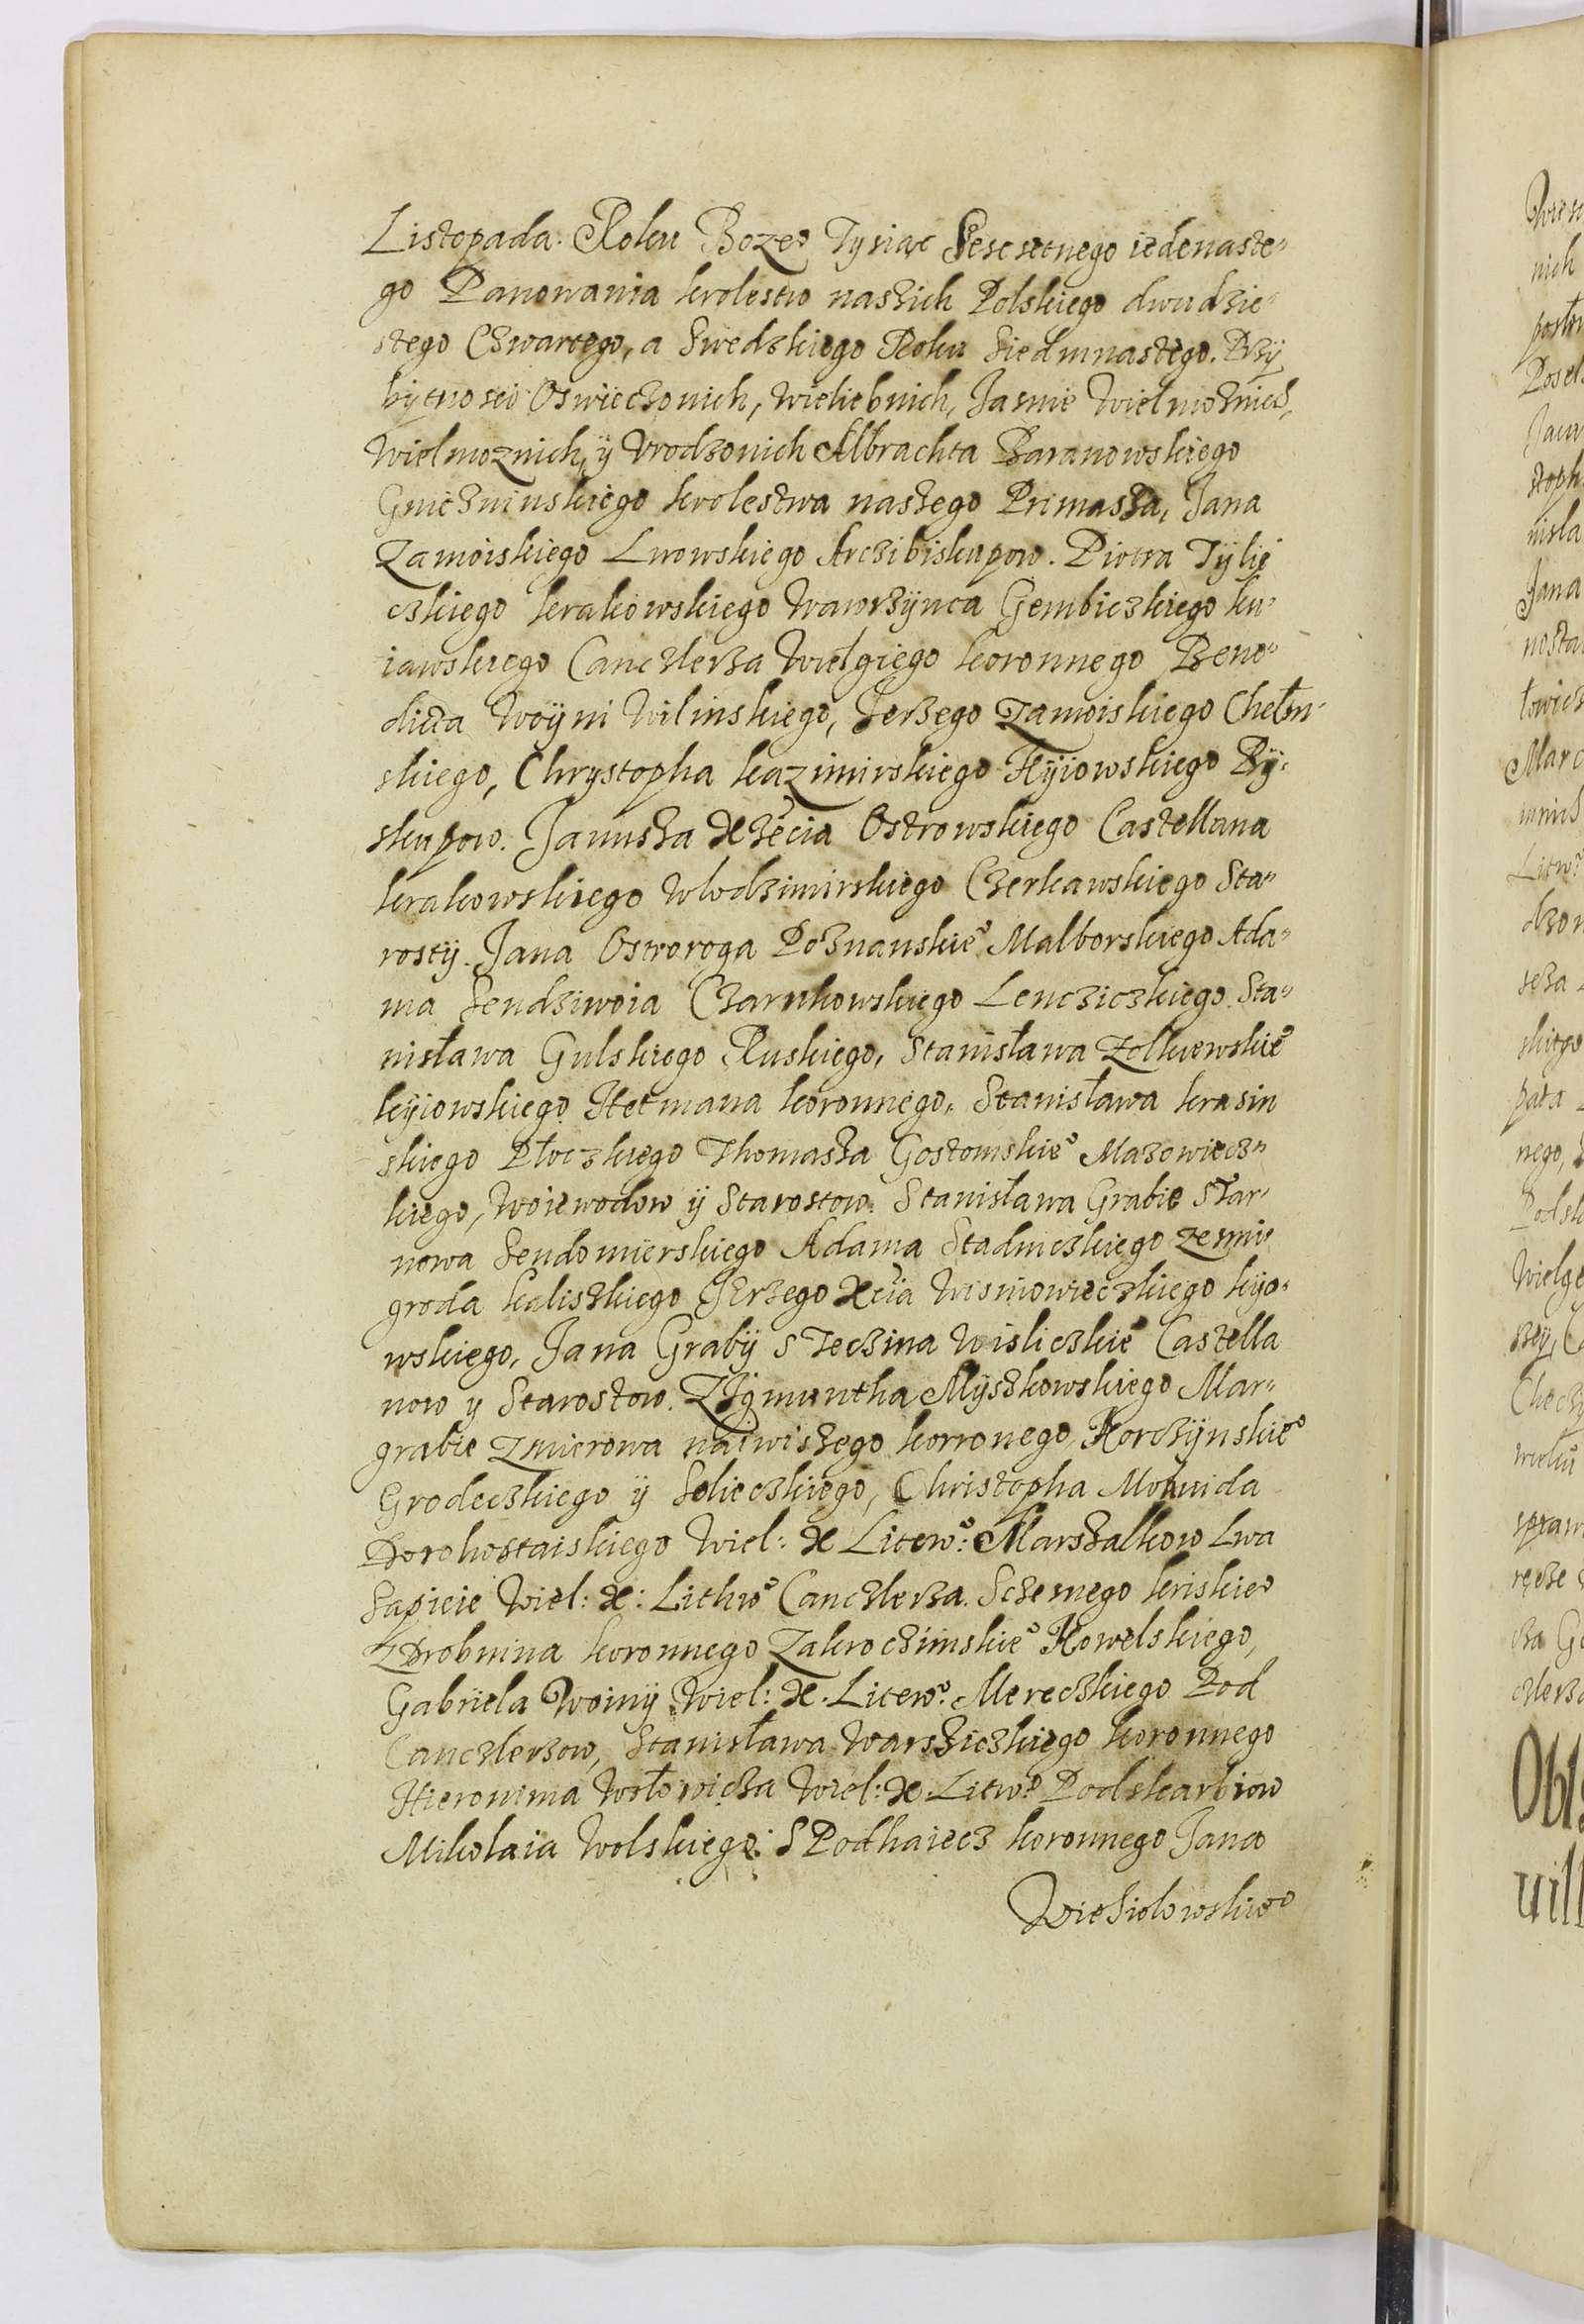 Listopada. Roku Bozeo Tysiąc Sescsetnego iedenaste„
go Panowania krolestw naszich Polskiego dwudzie„
stego Czwartego, a Swedzkiego Roku Siedmnastego. Przÿ
bÿtnosci Oswieczonich, wieliebnich, Jasnie Wielmoznich,
Wielmoznich, ÿ Vrodzonich Albrachta Baranowskiego
Gnieznınskiego krolestwa naszego Primasza, Jana
Zamoiskiego Lwowskiego Arczibiskupow. Piotra Tÿlie
czkiego krakowskiego Wawrzÿnca Gembiczkiego ku„
iawskiego Canczlerza Wielgiego koronnego Bene„
dicta Woÿni Wilinskiego, Jerzego Zamoiskiego Chełm„
skiego, Chrystopha kazimirskiego Kÿiowskiego Bÿ„
skupow. Janusza Xzecia Ostrowskiego Castellana
krakowskiego Wlodzimirskiego Czerkawskiego Sta„
rostÿ. Jana Ostroroga Poznanskieo Malborskiego Ada„
ma Sendziwoia Czarnkowskiego Lenczickiego. Sta„
nisława Gulskiego Ruskiego, Stanisława Zolkiewskieo
kÿiowskiego Hetmana koronnego, Stanisława krasin
skiego Płoczkiego Thomasza Gostomskieo Mazowiecz„
kiego, Woiewodow ÿ Starostow. Stanisława Grabie sTar„
nowa Sendomierskiego Adama Stadniczkiego zesmi„
groda kaliszkiego JErzego Xcia Wisniowieczkiego kÿo„
wskiego, Jana Grabÿ s Teczina Wisliczkieo Castella
now y Starostow. Zÿgmuntha Mÿszkowskiego Mar„
grabie Zmierowa naiwiszego korronego, Korczÿnskieo
Grodeczkiego ÿ Solieczkiego, Christopha Monuida
Dorohostaiskiego Wiel: X Litewo: Marszalkow Lwa
Sapieie Wiel: X: Lithwo Canczlerza. Sczesnego kriskieo
ZDrobnina koronnego Zakroczimskieo Kowelskiego,
Gabriela Woinÿ Wiel: X. Litewo. Mereczkiego Pod
Canczlerzow, Stanisława Warsziczkiego koronnego
Hieronima Wołowicza Wiel: X. Litwo Podskarbiow
Mikolaia Wolskiego: S Podhaiecz koronnego Jana
Wiesiolowskieo